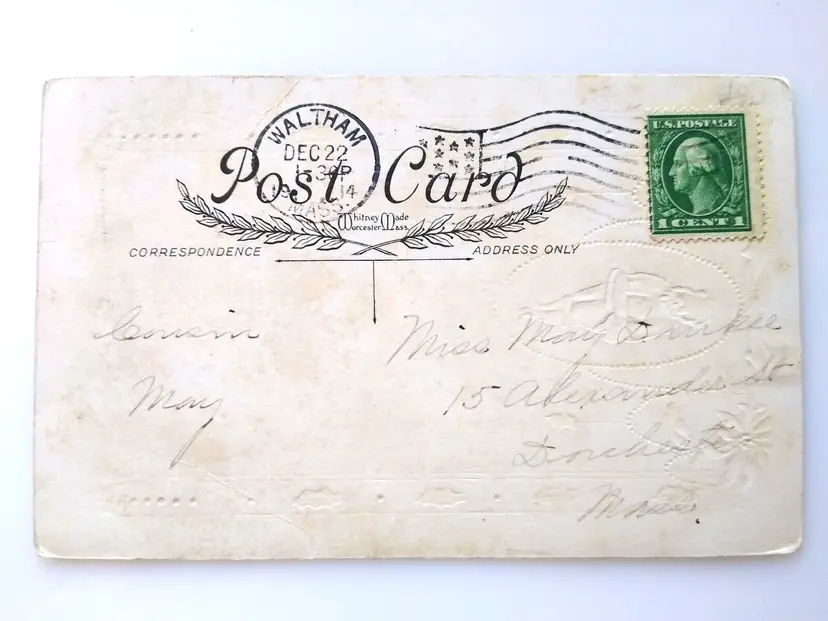 WALTHAM
DEC 22
1-30P
1914
MASS.
Post Card
Whitney Made
Worcester, Mass.
U.S. POSTAGE
1 CENT 1
CORRESPONDENCE
ADDRESS ONLY
Cousin
May
Miss May
15 Alexander St
Dorchester
Mass